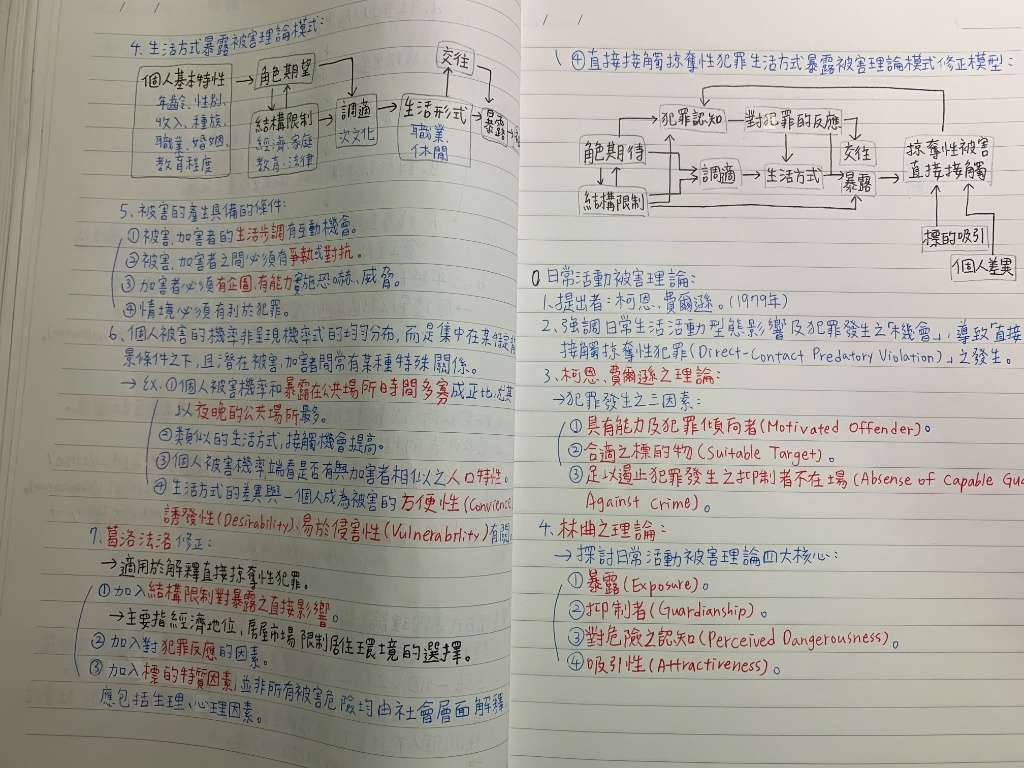 4. 生活方式暴露被害理論模式:
個人基本特性
年齡、性別、
收入、種族、
職業、婚姻、
教育程度
角色期望
結構限制
經濟、家庭
教育、法律
調適
次文化
生活形式
職業、
休閒
交往
暴露
5. 被害的產生具備的條件:
①被害、加害者的生活步調有互動機會。
②被害、加害者之間必須有爭執或對抗。
③加害者必須有企圖、有能力實施恐嚇、威脅。
④情境必須有利於犯罪。
6. 個人被害的機率非呈現機率式的均勻分布,而是集中在某
景條件之下,且潛在被害、加害者間常有某種特殊關係。
→ ex. ①個人被害機率和暴露在公共場所時間多寡成正比,尤其
以夜晚的公共場所最多。
②類似的生活方式,接觸機會提高。
③個人被害機率端看是否有與加害者相似以之人口特性。
④生活方式的差異與一個人成為被害的方便性(Convience
誘發性(Desirability)、易於侵害性(Vulnerability)有關
7. 葛洛法洛修正:
→適用於解釋直接掠奪性犯罪。
①加入結構限制對暴露之直接影響。
→主要指經濟地位,房屋市場限制居住環境的選擇。
②加入對犯罪反應的因素。
③加入標的特質因素,並非所有被害危險均由社會層面解釋
應包括生理、心理因素。
④直接接觸掠奪性犯罪生活方式暴露被害理論模式修正模型:
犯罪認知
對犯罪的反應
角色期待
結構限制
調適
生活方式
交往
暴露
掠奪性被害
直接接觸
標的吸引
個人差異
日常活動被害理論:
1. 提出者:柯恩、費爾遜。(1979年)
2. 強調日常生活活動型態影響及犯罪發生之「機會」,導致「直接
接觸掠奪性犯罪(Direct-Contact Predatory Violation)」之發生。
3. 柯恩、費爾遜之理論:
→犯罪發生之三因素:
①具有能力及犯罪傾向者(Motivated Offender)。
②合適之標的物(Suitable Target)。
③足以遏止犯罪發生之抑制者不在場(Absense of Capable Gua
Against crime)。
4. 林曲之理論:
→探討日常活動被害理論四大核心:
①暴露(Exposure)。
②抑制者(Guardianship)。
③對危險之認知(Perceived Dangerousness)。
④吸引性(Attractiveness)。